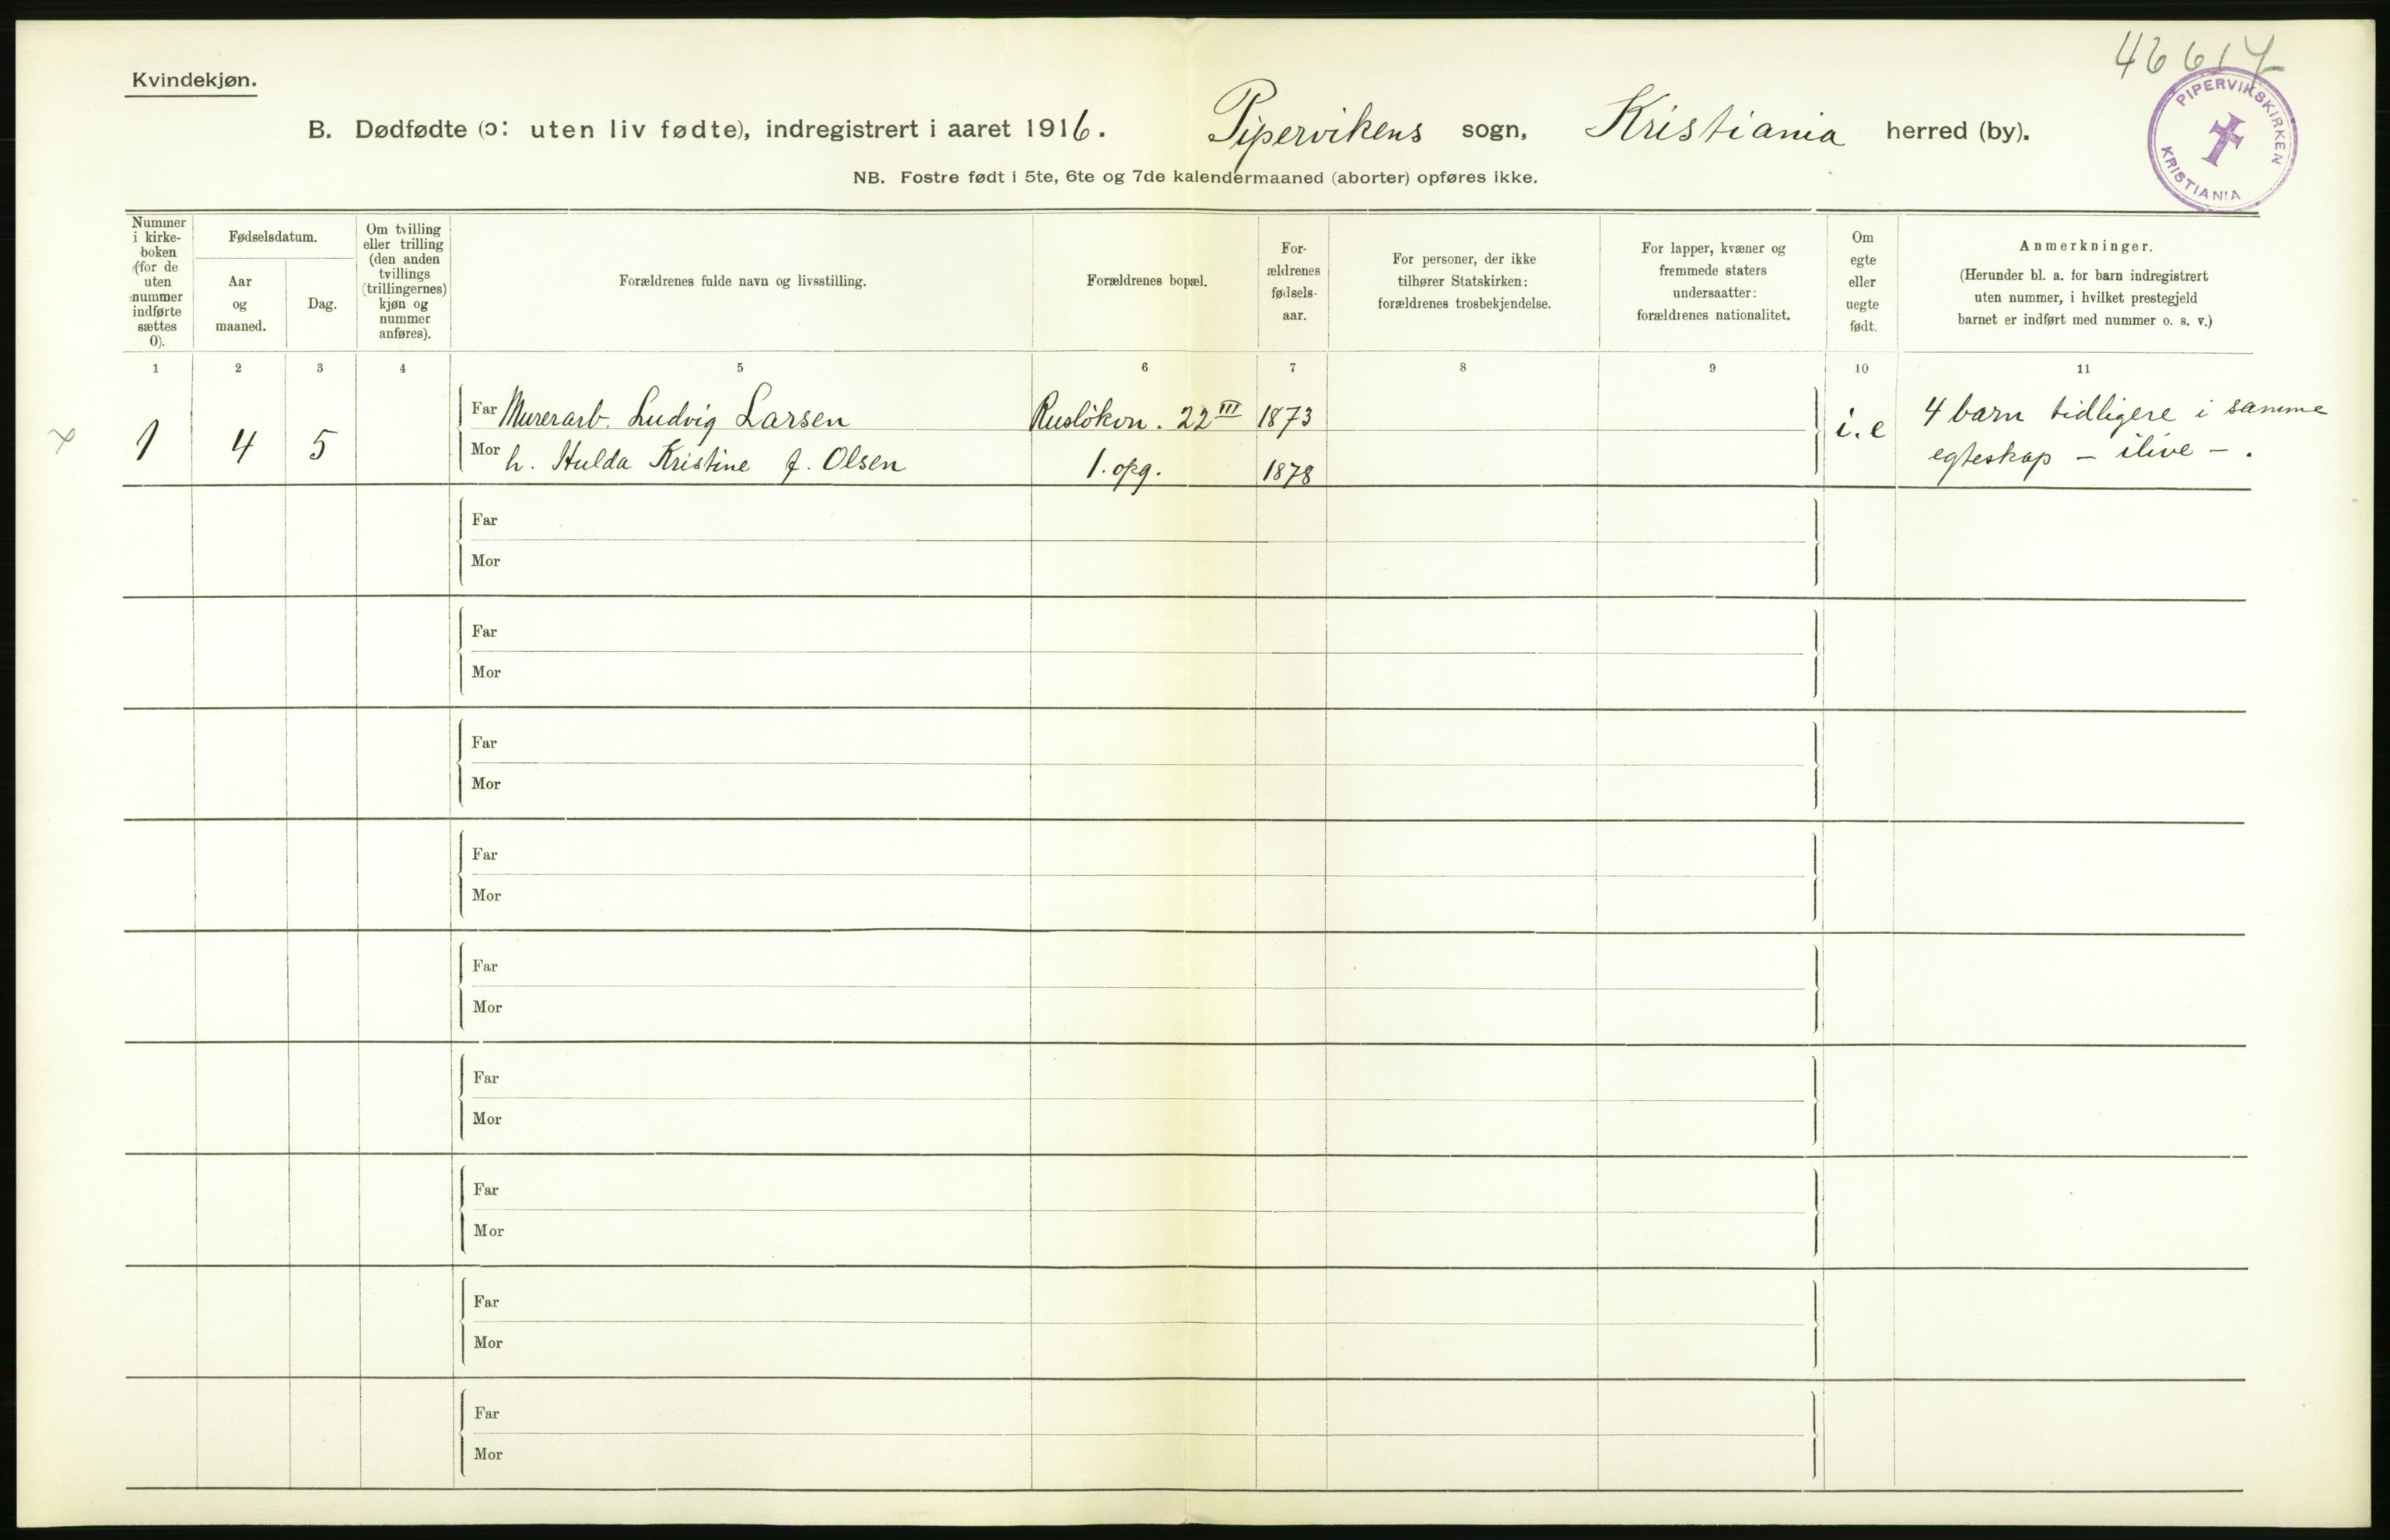 46617
Kvindekjøn.
PIPERVIKSKIRKEN
KRISTIANIA
B. Dødfødte (ɔ: uten liv fødte), indregistrert i aaret 1916. Pipervikens sogn, Kristiania herred (by).
NB. Fostre født i 5te, 6te og 7de kalendermaaned (aborter) opføres ikke.
Nummer
i kirke-
boken
(for de
uten
nummer
indførte
sættes
0).
Fødselsdatum.
Aar
og
maaned.
Dag.
Om tvilling
eller trilling
(den anden
tvillings
(trillingernes)
kjøn og
nummer
anføres).
Forældrenes fulde navn og livsstilling.
Forældrenes bopæl.
For-
ældrenes
fødsels-
aar.
For personer, der ikke
tilhører Statskirken:
forældrenes trosbekjendelse.
For lapper, kvæner og
fremmede staters
undersaatter:
forældrenes nationalitet.
Om
egte
eller
uegte
født.
Anmerkninger.
(Herunder bl. a. for barn indregistrert
uten nummer, i hvilket prestegjeld
barnet er indført med nummer o. s. v.)
1 2 3 4 5 6 7 8 9 10 11
1 4 5
Far Murerarb. Ludvig Larsen Rusløkvn. 22 III 1873
Mor h. Hulda Kristine f. Olsen 1. opg. 1878
i. e
4 barn tidligere i samme
egteskap – ilive – .
Far
Mor
Far
Mor
Far
Mor
Far
Mor
Far
Mor
Far
Mor
Far
Mor
Far
Mor
Far
Mor